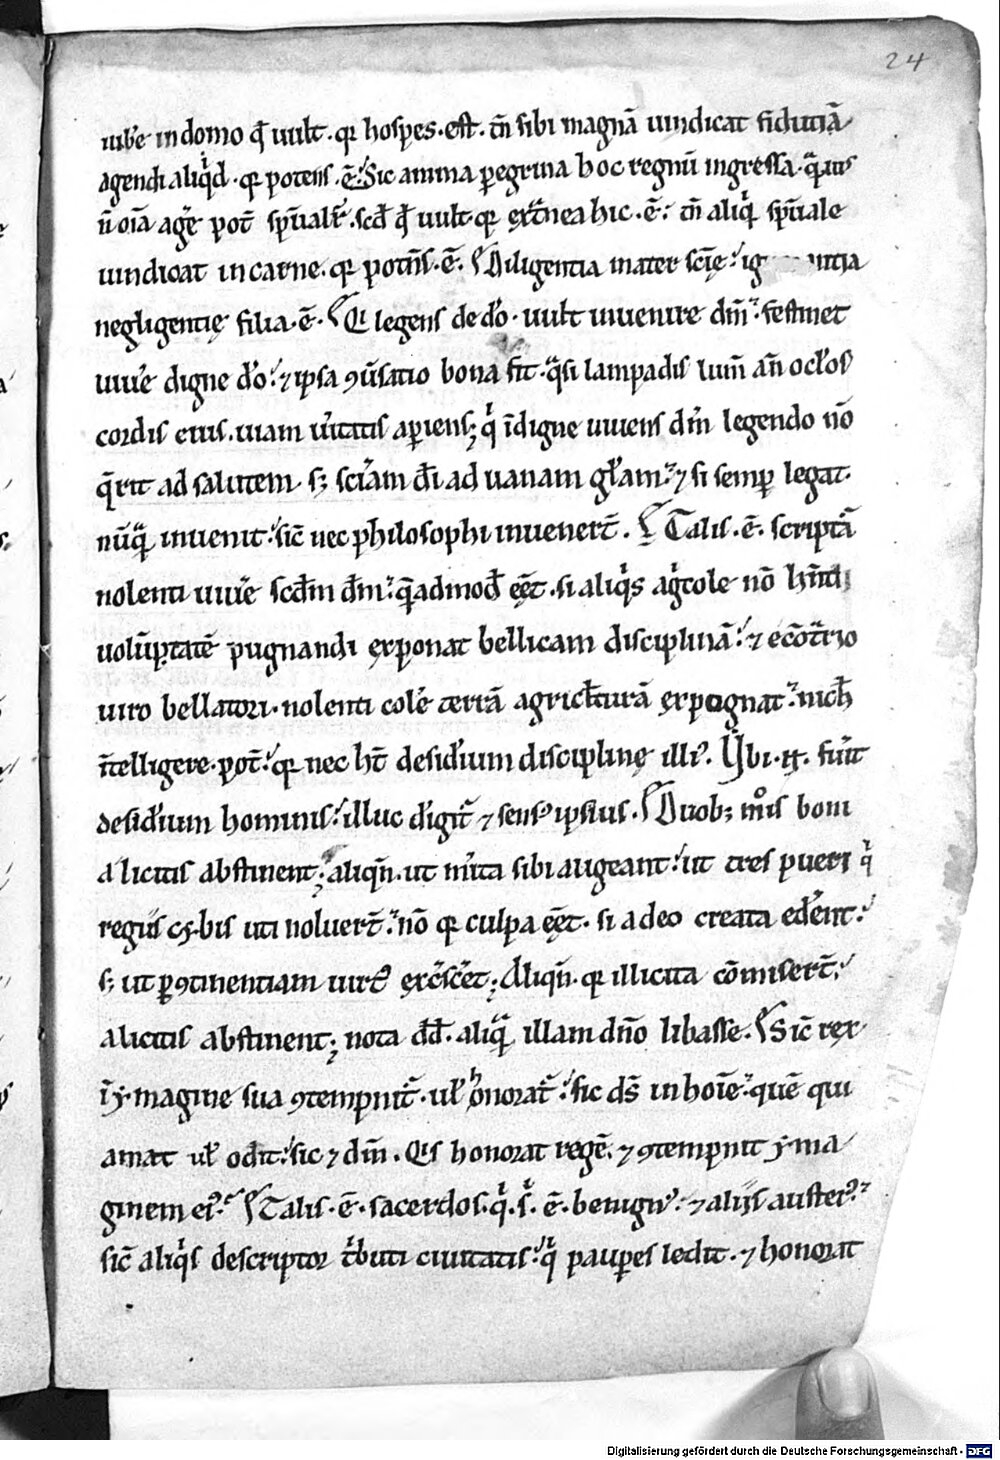 24
iub̅e in domo qd̅ uult · q̅r hospes · est · tn̅ sibi magnā uindicat fiduciā
agendi aliqͥd · q̅r potens · ē · Sic anima peregrina hoc regnū ingressa · qͣuis
n̅ oīa age̅ pot̅ spu̅alit̅ · scd̅ qd̅ uult · q̅r ext̅nea hic · ē · tn̅ aliqͥ spu̅ale
uindicat in carne · q̅r potn̅s · ē · Diligentia mater scīę · ig
negligentię filia · ē · Qi legens de do̅ · uult inuenire dm̅ · festinet
uiue̅ digne do̅ · ⁊ ipsa ꝯu̅satio bona sit · qͣsi lampadis lum̅ an̅ oc̅los
cordis eius · uiam u̅itatis aperiens ; qͥ īdigne uiuens dm̅ legendo nō
q̅rit ad salutem · sꝫ sci̅am di̅ ad uanam gl̅am · ⁊ si semp̱ legat ·
nūqͣ inuenit · sic̅ nec philosophi inuenert̅ · Talis · ē · scriptā
nolenti uiue̅ scd̅m dm̅ · qͣ̅admod̅ eēt · si aliqͥs agͥcole nō hn̅ti
uolu̅ptatē pugnandi exponat bellicam disciplinā · ⁊ ecōtͣrio
uiro bellatori · nolenti cole̅ terrā agricl̅turā exponat · nich̅
īntelligere · pot̅ · q̅r nec ht̅ desid̅ium disciplinę illiꝰ · Vbi · n̅ · fu̅it
desid̅ium hominis · illuc d̅igit̅ ⁊ sensꝰ ipsius · Duobꝫ mo̅is boni
a licitis abstinent ; aliqn̅ · ut m̅ita sibi augeant · ut tres pueri qͥ
regiis cybis uti noluert̅ · nō q̅r culpa eēt · si a deo creata ede̅ent ·
sꝫ ut ꝑ ꝯtinentiam uirtꝰ exc̅sce̅t ; Aliqn̅ · q̅r illicita cōmisert̅ ·
a licitis abstinent ; nota dd̅ · aliqͣ illam dn̅o libasse · Sic̅ rex
ī y·magine sua ꝯtempnit̅ · ul̅ honorat̅ · sic ds̅ in hoīe · quē qui
amat ul̅ odit · sic ⁊ dm̅ · Qis honorat regē · ⁊ ꝯtempnit y·ma
ginem eiꝰ · Talis · ē · sacerdos · qͥ · sͥ · ē · benignꝰ · ⁊ aliis austerꝰ ·
sic̅ aliqͥs descriptor tͥbuti ciuitatis · qͥ pauperes ledit · ⁊ honorat
Digitalisierung gefördert durch die Deutsche Forschungsgemeinschaft - DFG